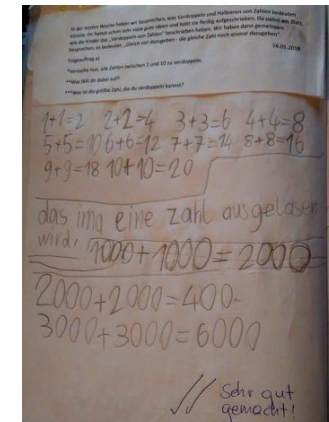 In der letzten Woche haben wir besprochen, was Verdoppeln und Halbieren von Zahlen bedeuten
könnte. Ihr hattet schon sehr viele gute Ideen und habt sie fleißig aufgeschrieben. Du siehst am
wie die Kinder das „Verdoppeln von Zahlen" beschrieben haben. Wir haben dann gemeinsam
besprochen, es bedeutet „Gleich viel dazugeben - die gleiche Zahl noch einmal dazugeben"
16.05.2018
*Versuche nun, alle Zahlen zwischen 1 und 10 zu verdoppeln.
**Was fällt dir dabei auf?
***Was ist die größte Zahl, die du verdoppeln kannst?
1+1=2 2+2=4 3+3=6 4+4=8
5+5=10 6+6=12 7+7=14 8+8=16
9+9=18 10+10=20
das img eine zahl ausgelasen
wird.
1000+1000=2000
2000+2000=400
3000+3000=6000
Sehr gut
gemacht!